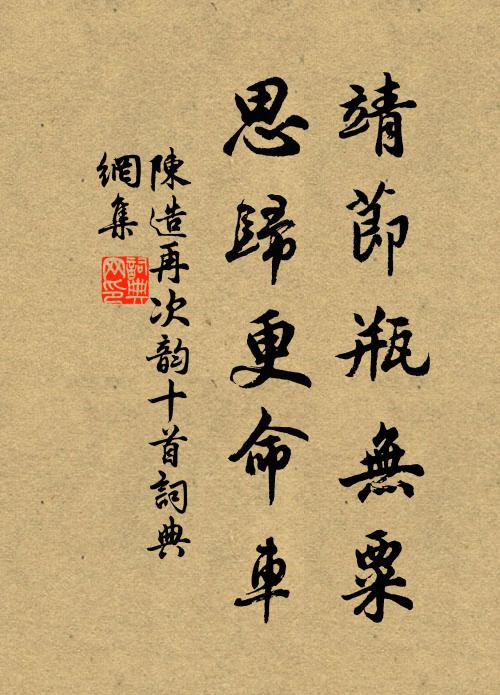 靖節瓶無粟
思歸更命車
陳造再次韵十首詞典
網集
詞典
网印